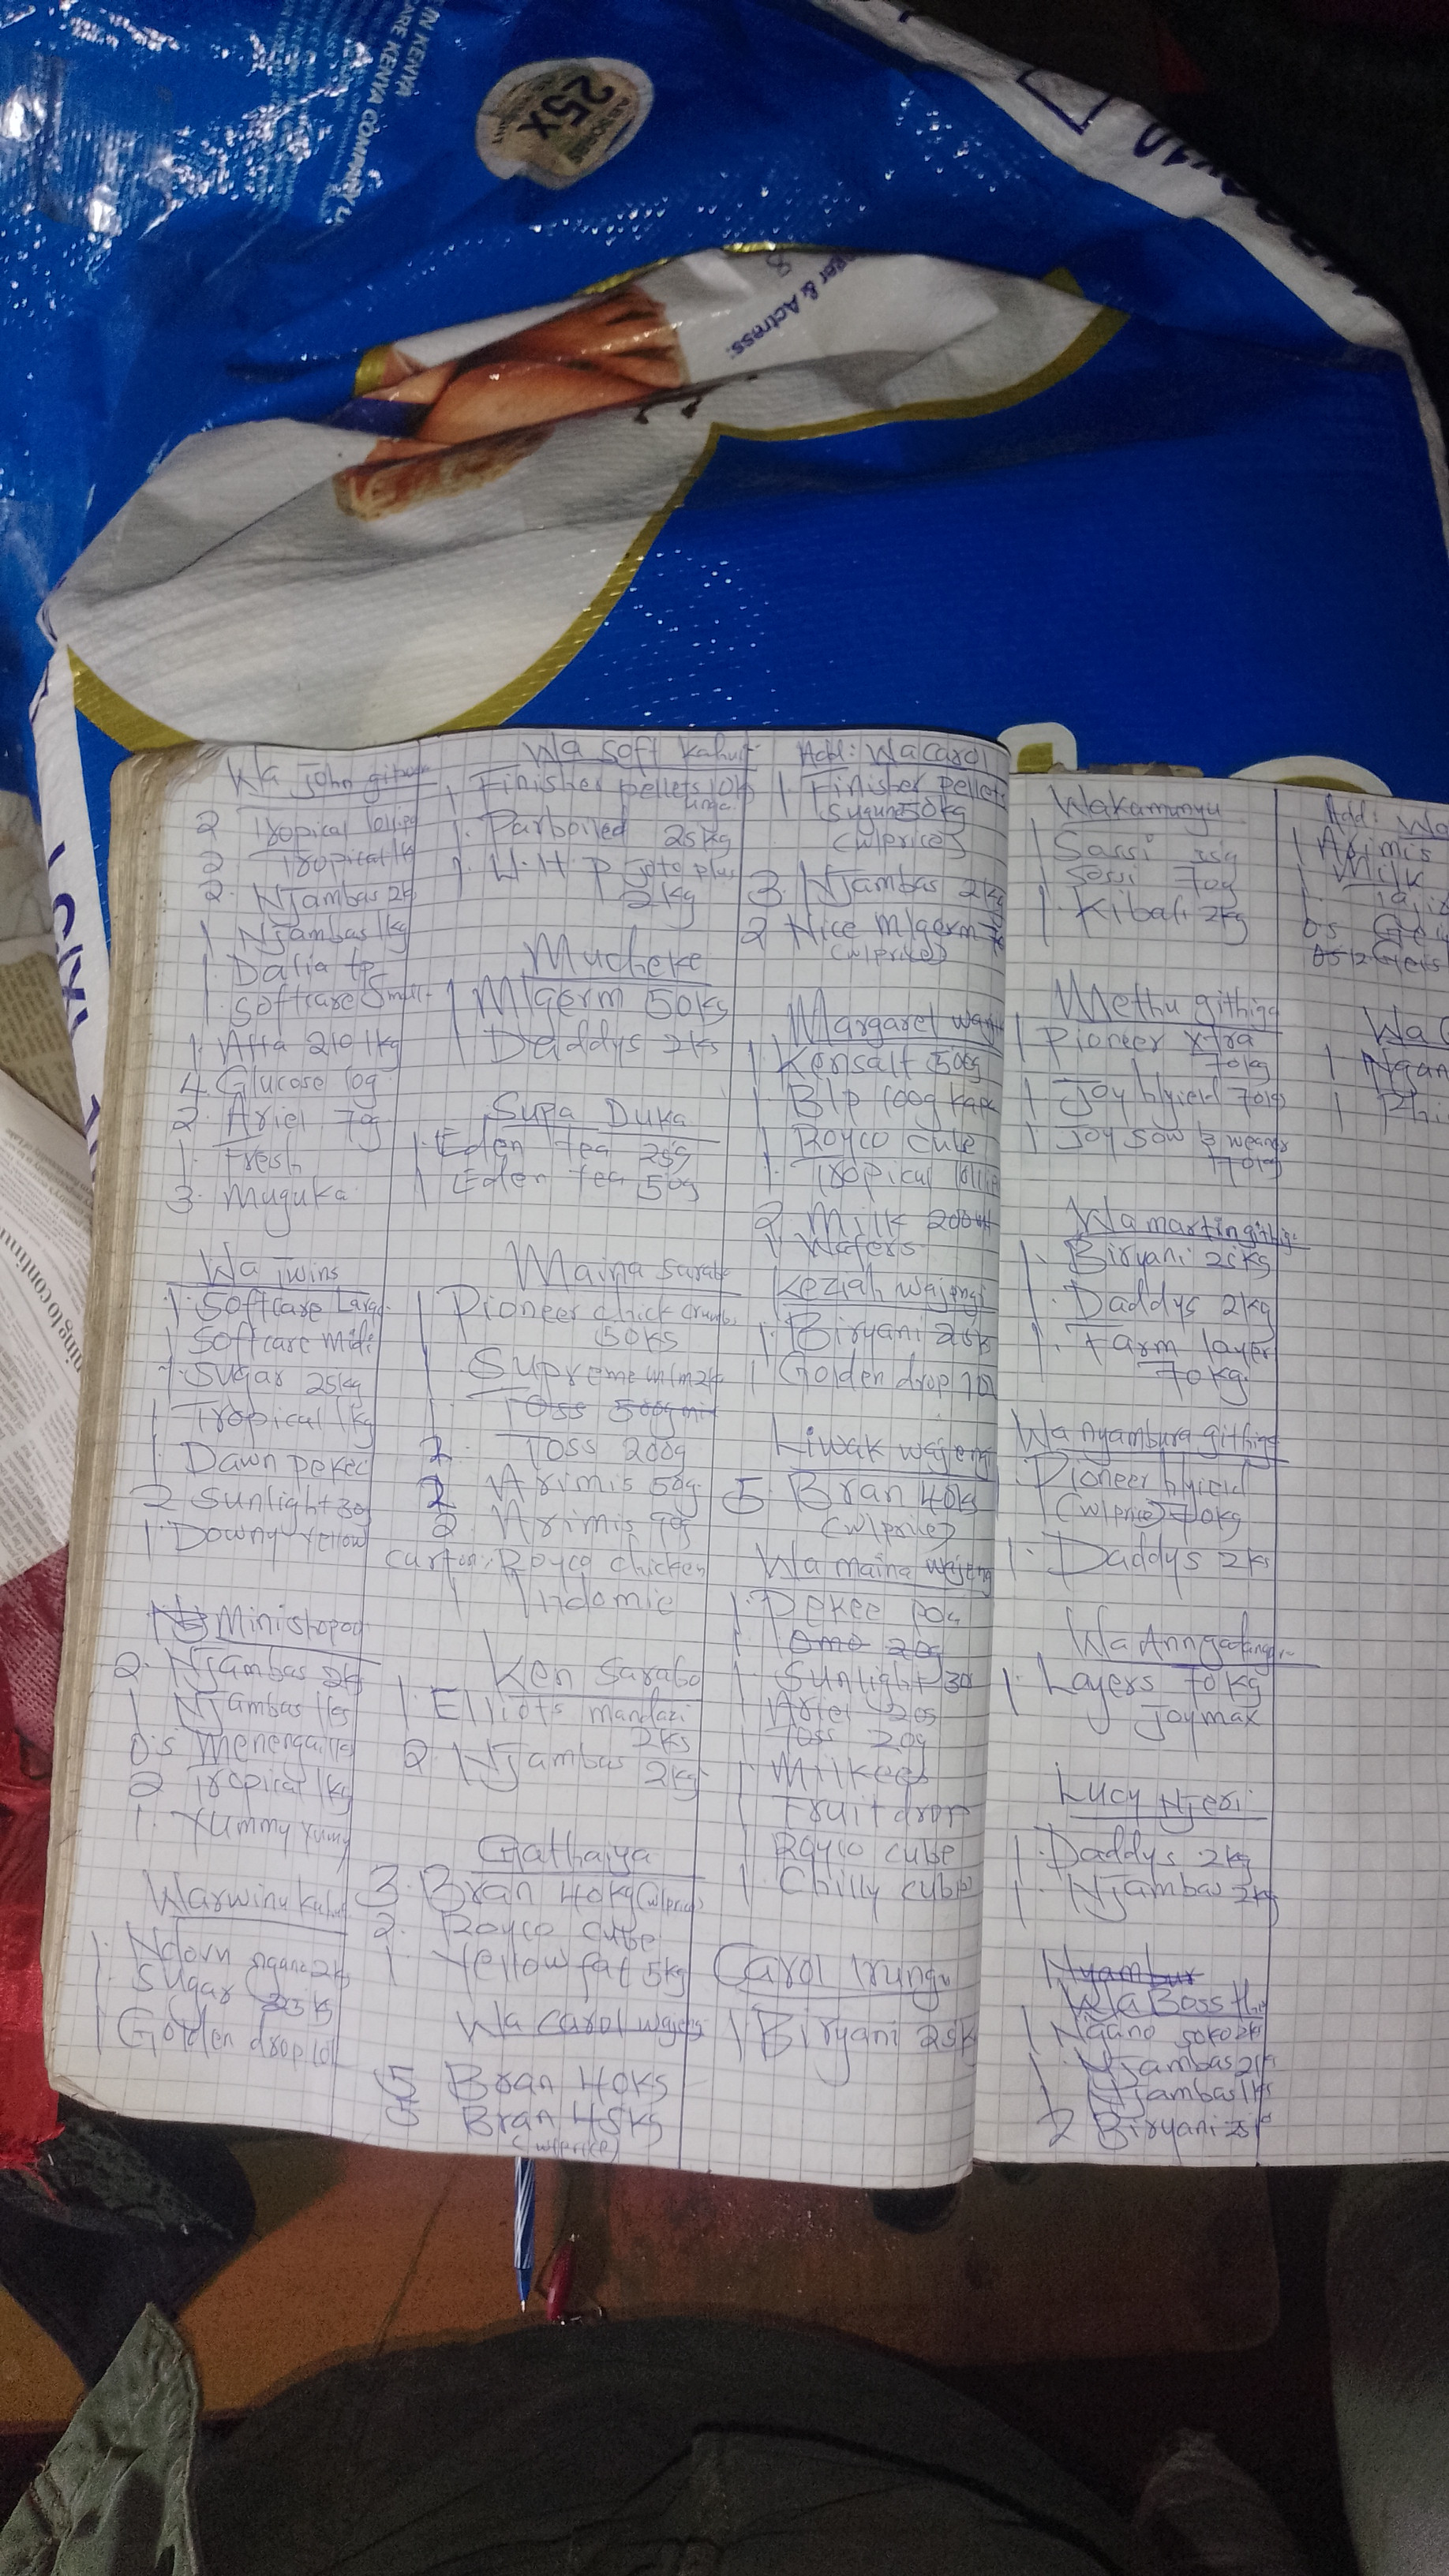 IN KENYA
ARE KENYA COMPANY L
25X
ger & Actress:
ning to continu
Wa John
2 Tropical lollipop
2 Tropical 1kg
2. Njambas 2kg
1 Njambas 1kg
1. Dalia tp
1 Softcare Small
1. Atta 210 1kg
4. Glucose 10g
2. Ariel 7g
1. Fresh
3. Muguka
Wa Twins
1. Softcare Large
1 Softcare midi
1. Sugar 25kg
1 Tropical 1kg
1. Dawn pekee
2 Sunlight 30g
1. Downy Yellow
Ministopod
2. Njambas 2kg
1 Njambas 1kg
0.5 Menengai 1kg
2 Tropical 1kg
1. Yummy Yummy
Warwinu
1. Ndovu ngano 2kg
1. Sugar 25kg
1 Golden drop 10L
Wa Soft
1 Finisher pellets
1. Parboiled 25kg
1. W.H.P Joto plus
2kg
Mucheke
1 Mlgerm 50ks
1 Daddys 2ks
Supa Duka
1. Eden tea 25g
1 Eden tea 50g
Maina Sarabo
1 Pioneer chick crumbs
50ks
1 Supreme 2k
1. Toss 500g
2. Toss 200g
2 Arimis 50g
2 Arimis 90g
carton: Royco chicken
1 Indomie
Ken Sarabo
1. Elliots mandazi
2ks
2. Njambas 2kg
Gathaiya
3. Bran 40kg (w/price)
2. Royco cube
1 Yellow fat 5kg
Wa carol
5 Bran 40ks
5 Bran 45ks
(w/price)
Add: Wa Carol
1 Finisher pellets
50kg
(w/price)
3. Njambas 2kg
2 Nice mlgerm
(w/price)
Margaret
1 Kensalt 500g
1 Blp 100g
1 Royco cube
1. Tropical lollie
2 Milk 200
1 Wafers
Keziah
1. Biryani 25ks
1 Golden drop
5. Bran 40ks
(w/price)
Wa maina
1. Pekee
1. Omo 20g
1 Sunlight 30
1 Ariel 20g
1 Toss 20g
1 Milkees
1 Fruit drop
1 Royco cube
1 Chilly cubes
Carol Irungu
1 Biryani 25k
Wakamunyu
1 Sassi 35g
1 Sossi 70g
1. Kibali 2kg
Methu githiga
1 Pioneer xtra
70kg
1 Joy hyield 70kg
1. Joy sow & weaner
70kg
Wa martin
1. Biryani 25kg
1. Daddys 2kg
1. Farm layer
70kg
Wa nyambura githiga
1. Pioneer hyield
(w/price) 70kg
1. Daddys 2ks
Wa Ann
1. Layers 70kg
Joymax
Lucy Njeri
1. Daddys 2kg
1. Njambas 2kg
Nyambur
Wa Boss
1 Ngano soko 2ks
1. Njambas 2kg
1 Njambas 1ks
2 Biryani 25k
Add: Wa
1 Arimis
1. Milk
Wa
1 Ngan
1